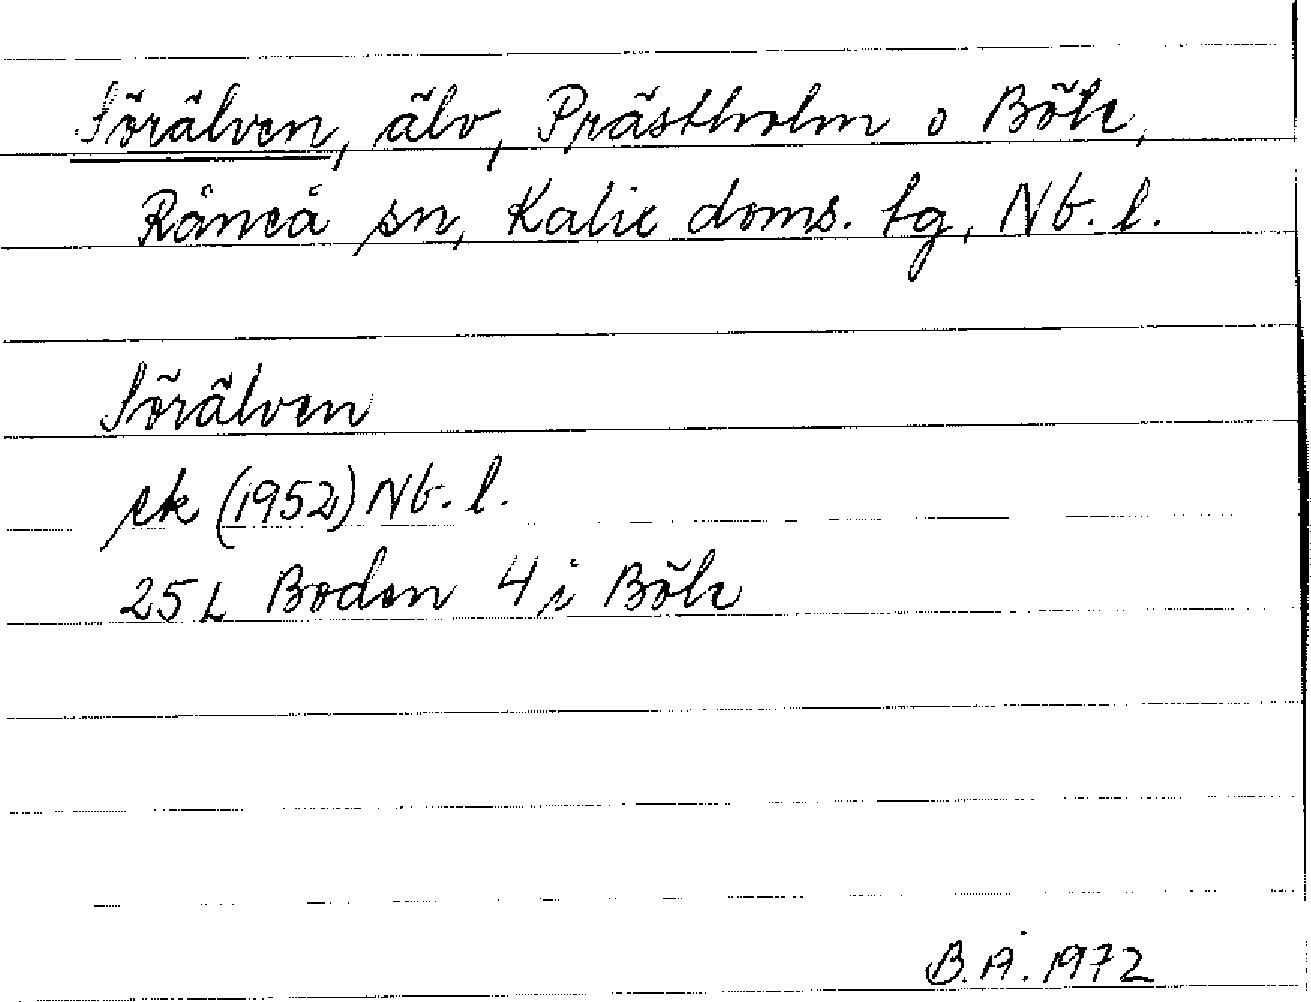 Sörälven, älv, Prästholm o Böle,
Råneå sn, Kalix doms. tg, Nb. l.
Sörälven
ek (1952) Nb. l.
25 L Boden 4 i Böle
B.Å. 1972